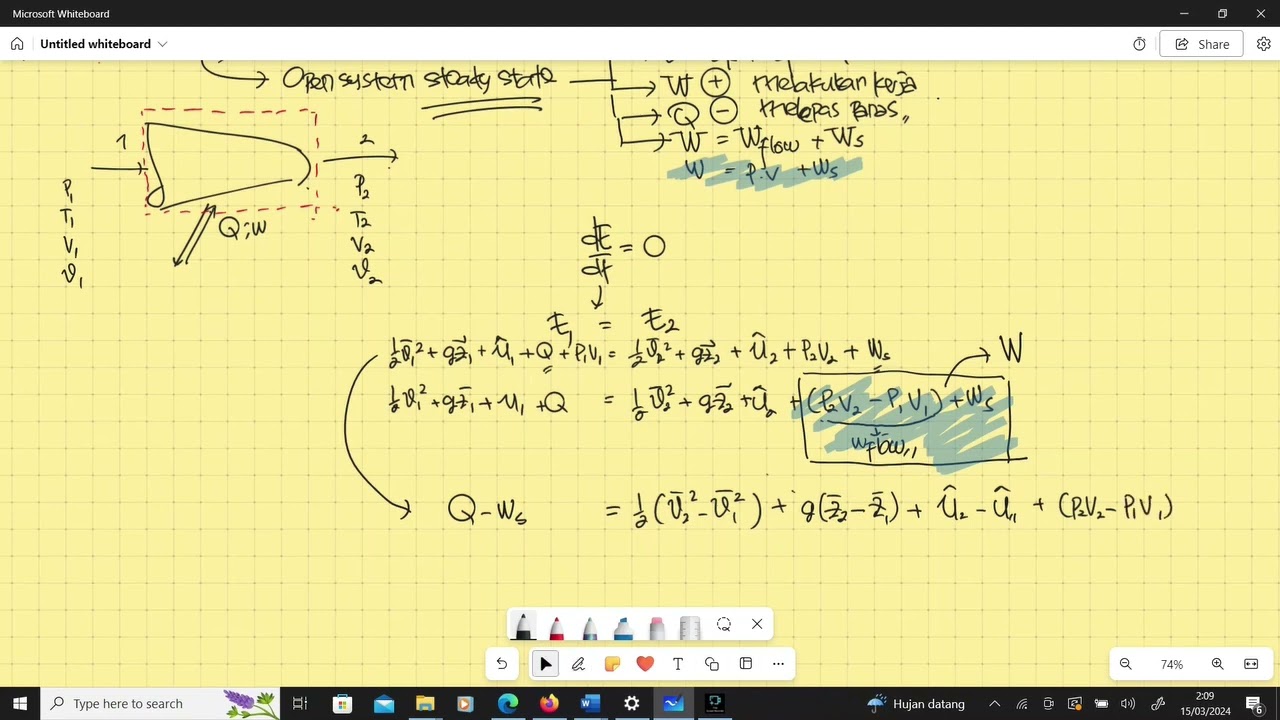 Microsoft Whiteboard
Untitled whiteboard
Share
→ Open system steady state
→ W ⊕ melakukan kerja
→ Q ⊖ melepas panas,,
→ W = Wflow + Ws
W = P.V + Ws
1
2
P₁
T₁
V₁
v₁
P₂
T₂
V₂
v₂
Q;W
dE/dt = 0
↓
E₁ = E₂
½v̄₁² + gz̄₁ + Û₁ + Q + P₁V₁ = ½v̄₂² + gz̄₂ + Û₂ + P₂V₂ + Ws
→ W
½v̄₁² + gz̄₁ + U₁ + Q = ½v̄₂² + gz̄₂ + Û₂ + (P₂V₂ − P₁V₁) + Ws
Wflow,,
→ Q − Ws = ½(v̄₂² − v̄₁²) + g(z̄₂ − z̄₁) + Û₂ − Û₁ + (P₂V₂ − P₁V₁)
74%
Type here to search
Hujan datang
2:09
15/03/2024
6